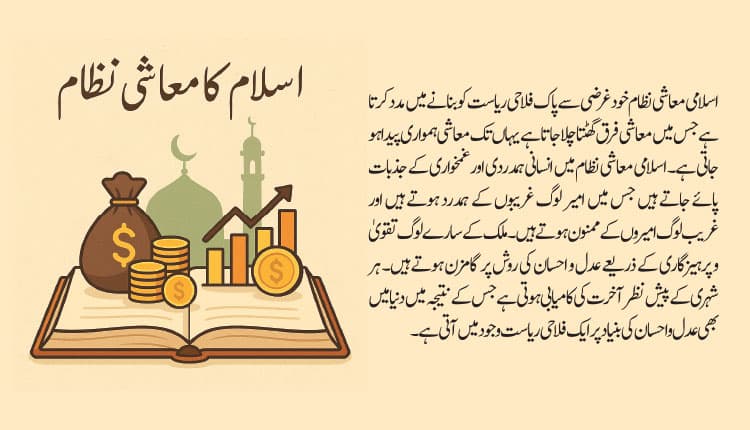 اسلام کا معاشی نظام
اسلامی معاشی نظام خود غرضی سے پاک فلاحی ریاست کو بنانے میں مدد کرتا
ہے جس میں معاشی فرق گھٹتا چلا جاتا ہے یہاں تک معاشی ہمواری پیدا ہو
جاتی ہے۔ اسلامی معاشی نظام میں انسانی ہمدردی اور غمخواری کے جذبات
پائے جاتے ہیں جس میں امیر لوگ غریبوں کے ہمدرد ہوتے ہیں اور
غریب لوگ امیروں کے ممنون ہوتے ہیں۔ ملک کے سارے لوگ تقویٰ
و پرہیزگاری کے ذریعے عدل و احسان کی روش پر گامزن ہوتے ہیں۔ ہر
شہری کے پیش نظر آخرت کی کامیابی ہوتی ہے جس کے نتیجہ میں دنیا میں
بھی عدل و احسان کی بنیاد پر ایک فلاحی ریاست وجود میں آتی ہے۔
$
$
$